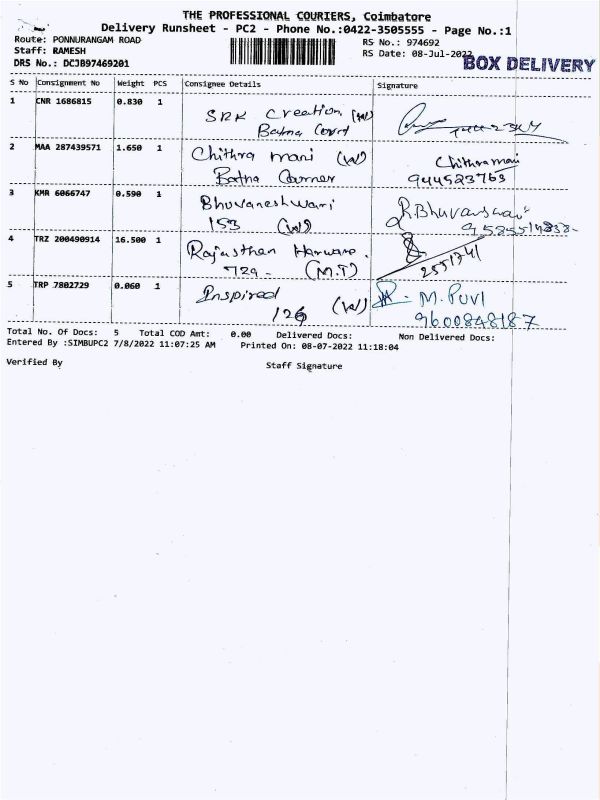 THE PROFESSIONAL COURIERS, Coimbatore
Delivery Runsheet - PC2 - Phone No.:0422-3505555 - Page No.:1
Route: PONNURANGAM ROAD
RS No.: 974692
Staff: RAMESH
RS Date: 08-Jul-2022
BOX DELIVERY
DRS No.: DCJB97469201
S No Consignment No Weight PCS Consignee Details Signature
1 CNR 1686815 0.830 1 SRK Creation (W)
2 MAA 287439571 1.650 1 Chithra mani (W) Chithramani
Batna Corner 944523763
3 KMR 6066747 0.590 1 Bhuvaneshwari R.Bhuvaneswari
153 (W)
4 TRZ 200490914 16.500 1 Rajasthan Harware.
729- (M.T) 2551741
5 TRP 7802729 0.060 1 Inspired (W) M. PUVI
126 9600848187
Total No. Of Docs: 5 Total COD Amt: 0.00 Delivered Docs: Non Delivered Docs:
Entered By :SIMBUPC2 7/8/2022 11:07:25 AM Printed On: 08-07-2022 11:18:04
Verified By Staff Signature